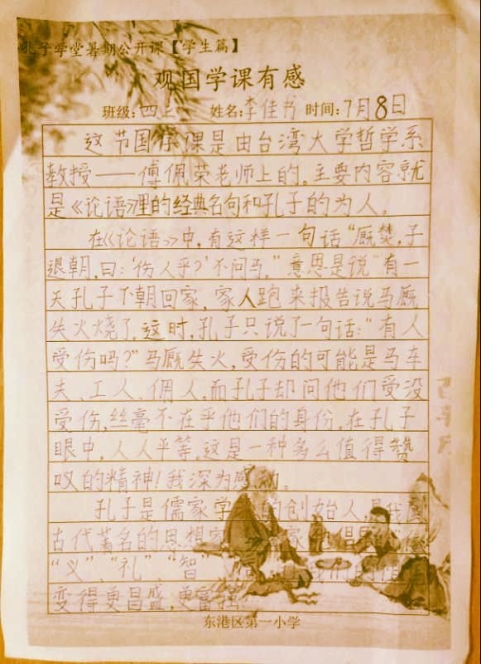 孔子学堂暑期公开课【学生篇】
观国学课有感
班级:四上 姓名:李佳书 时间:7月8日
这节国学课是由台湾大学哲学系
教授——傅佩荣老师上的,主要内容就
是《论语》里的经典名句和孔子的为人。
在《论语》中,有这样一句话“厩焚,子
退朝,曰:‘伤人乎?’不问马。”意思是说“有一
天孔子下朝回家,家人跑来报告说马厩
失火烧了,这时,孔子只说了一句话:“有人
受伤吗?”马厩失火,受伤的可能是马车
夫、工人、佣人,而孔子却问他们受没
受伤,丝毫不在乎他们的身份,在孔子
眼中,人人平等,这是一种多么值得赞
叹的精神!我深为感
孔子是儒家学 的创始人,是我
古代著名的思想家
“义”“礼”“智”
变得更昌盛,更富强
东港区第一小学